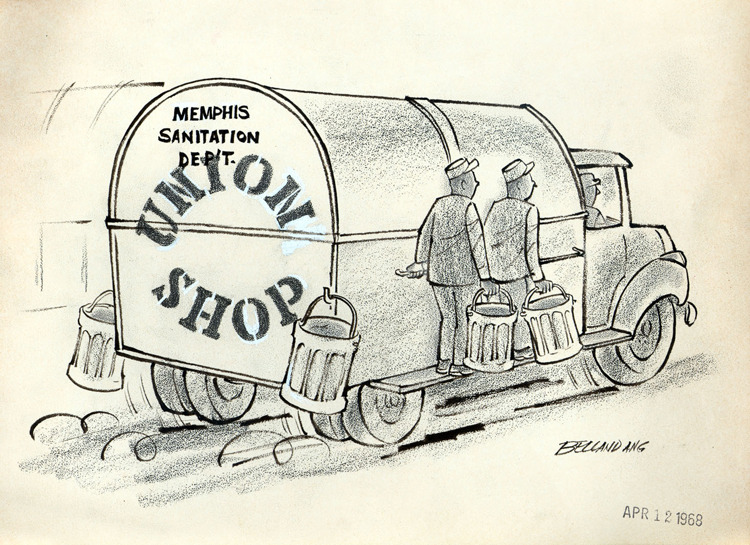 MEMPHIS
SANITATION
DEP'T.
UNION
SHOP
BELLANDANG
APR 12 1968